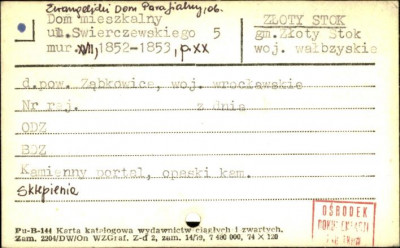 Ewangelicki Dom Parafialny, ob.
Dom mieszkalny
ul. Świerczewskiego 5
mur. XVII, 1852-1853, p XX
ZŁOTY STOK
gm. Złoty Stok
woj. wałbrzyskie
d.pow. Ząbkowice, woj. wrocławskie
Nr rej. z dnia
ODZ
BOZ
Kamienny portal, opaski kam.
Sklepienia
OŚRODEK
DOKUMENTACJI
Pu-B-144 Karta katalogowa wydawnictw ciągłych i zwartych.
Zam. 2204/DW/On WZGraf. Z-d 2, zam. 14/79, 7 480 000, 74 × 120